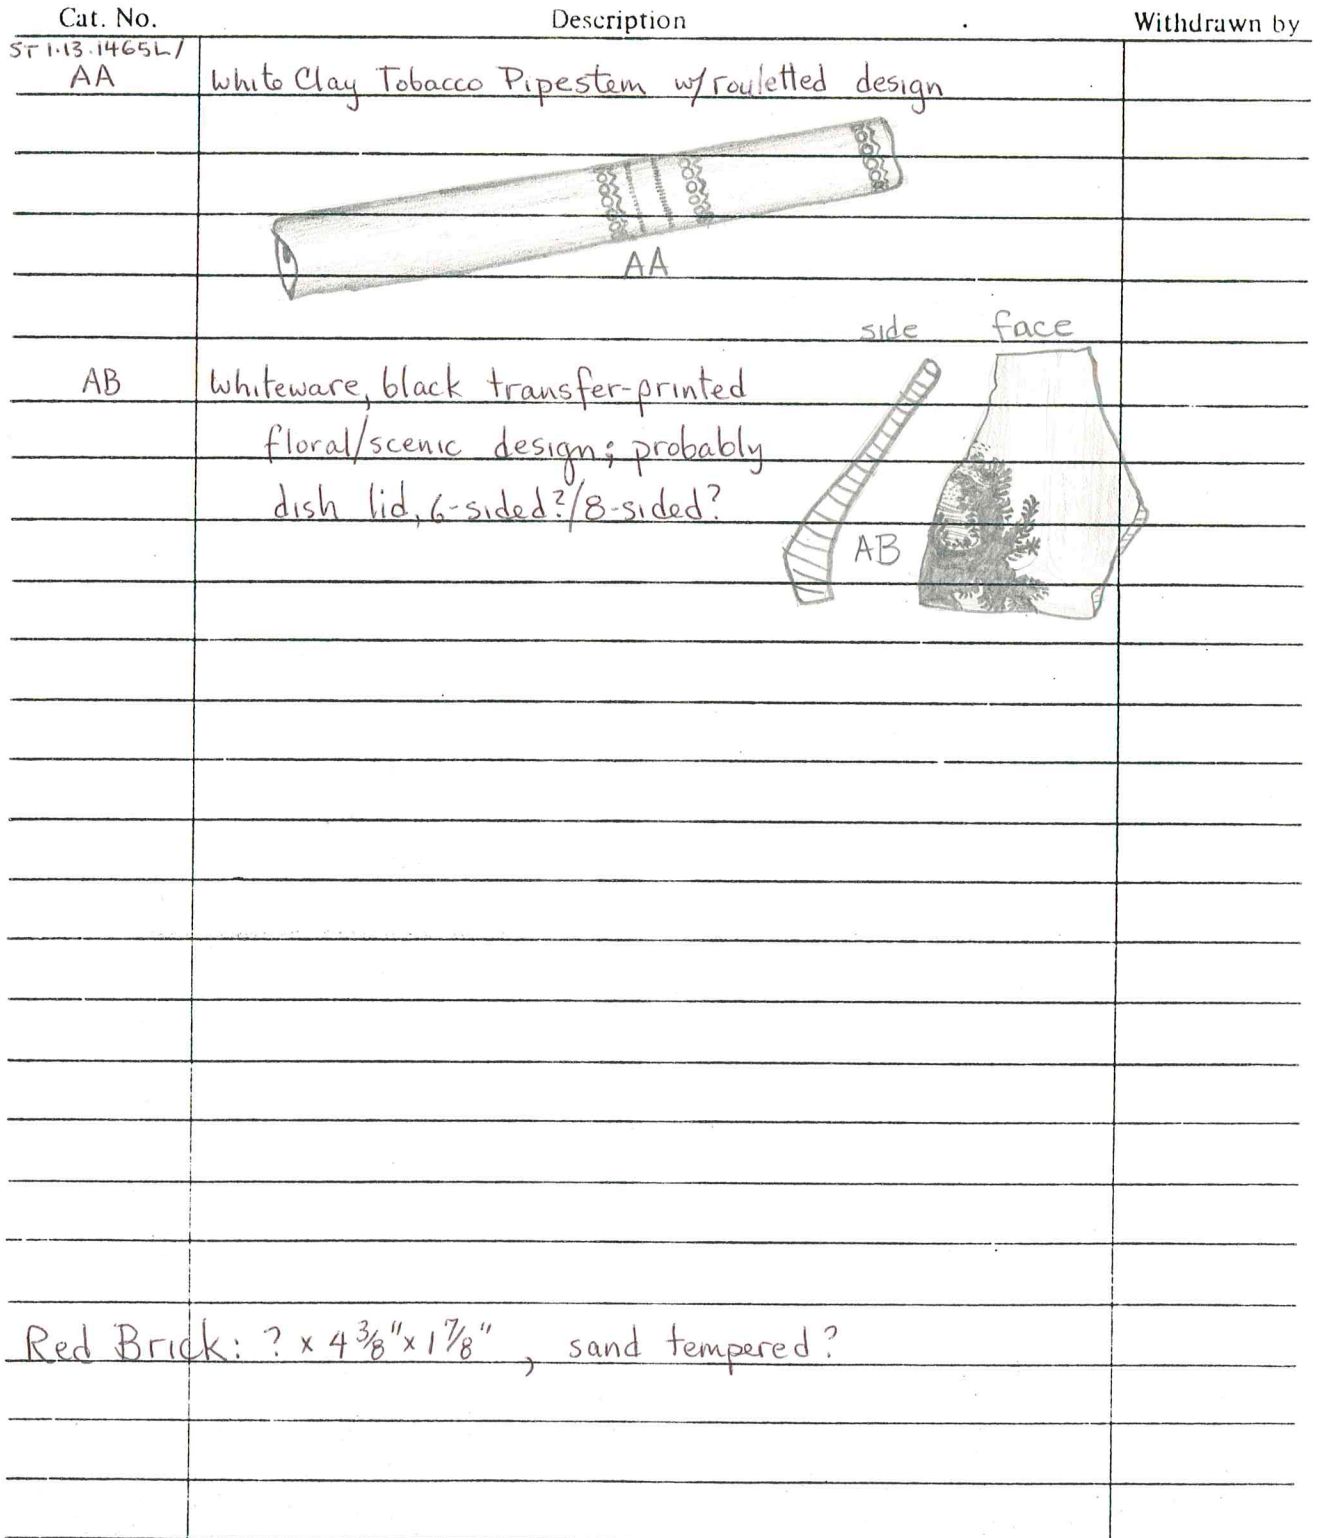 Cat. No. Description Withdrawn by
ST 1.13.1465L/
AA White Clay Tobacco Pipestem w/rouletted design
AA
side face
AB Whiteware, black transfer-printed
floral/scenic design; probably
dish lid, 6-sided?/8-sided?
AB
Red Brick: ? x 4 3/8" x 1 7/8", sand tempered?